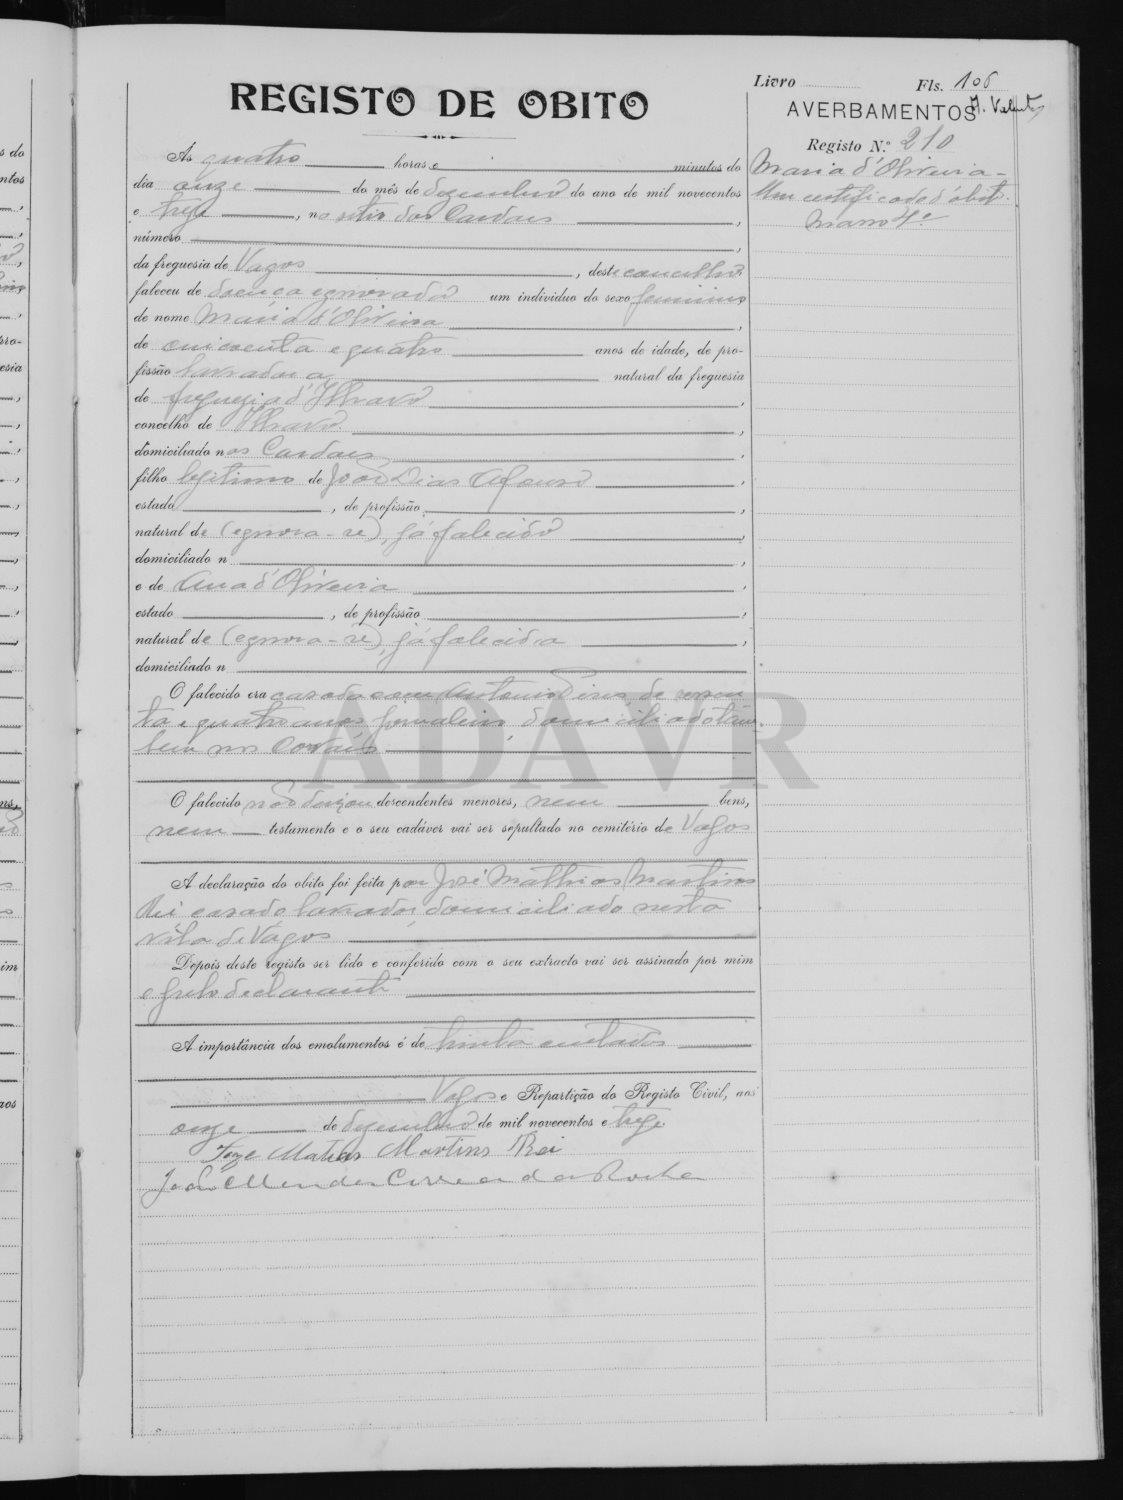 Livro Fls. 106
REGISTO DE OBITO
AVERBAMENTOS
Registo N.º 210
Ás quatro horas e minutos do
dia onze do mês de dezembro do ano de mil novecentos
e treze, no sitio dos Cardais,
número
da freguesia de Vagos, deste concelho
faleceu de doença egnorada um individuo do sexo feminino
de nome Maria d'Oliveira,
de cincoenta e quatro anos de idade, de pro-
fissão lavradora natural da freguesia
de freguezia d'Ilhavo,
concelho de Ilhavo,
domiciliado nos Cardais,
filho legitimo de João Dias Afonso,
estado, de profissão,
natural de (egnora-se), já falecido,
domiciliado n,
e de Ana d'Oliveira,
estado, de profissão,
natural de (egnora-se), já falecida,
domiciliado n
O falecido era casada com Antonio Pires de sesen
ta e quatro anos jornaleiro, domiciliado tam
bem nos Cardais
O falecido não deixou descendentes menores, nem bens,
nem testamento e o seu cadáver vai ser sepultado no cemitério de Vagos
A declaração do obito foi feita por José Mathias Martins
Rei casado lavrador, domiciliado nesta
vila de Vagos
Depois deste registo ser lido e conferido com o seu extracto vai ser assinado por mim
e pelo declarante
A importância dos emolumentos é de trinta centavos
Vagos e Repartição do Registo Civil, aos
onze de dezembro de mil novecentos e treze.
Joze Matias Martins Rei
João Mendes Correia da Rocha
Maria d'Oliveira -
Um certificado d'obito
Masso 4.º
ADAVR